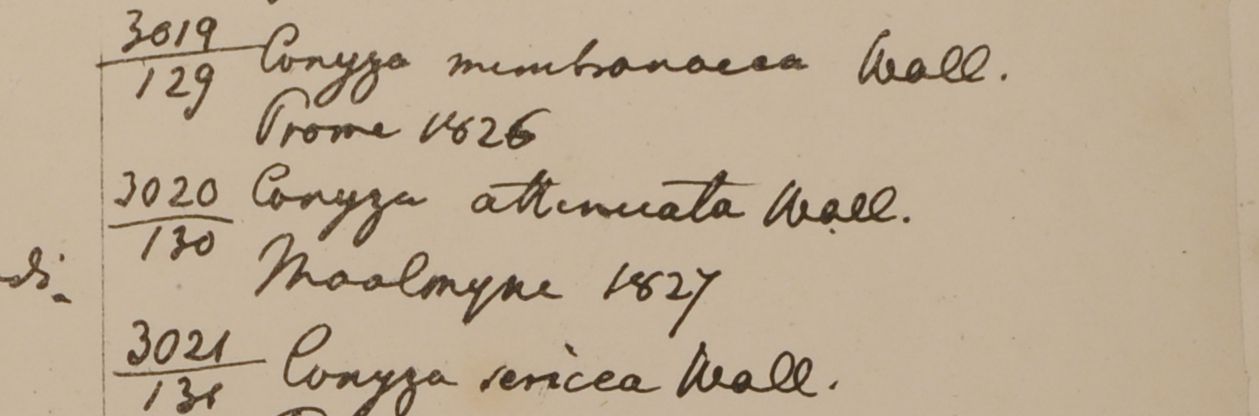 3019 Conyza membranacea Wall.
129
Prome 1826
3020 Conyza attenuata Wall.
130
Moalmyne 1827
3021 Conyza sericea Wall.
131